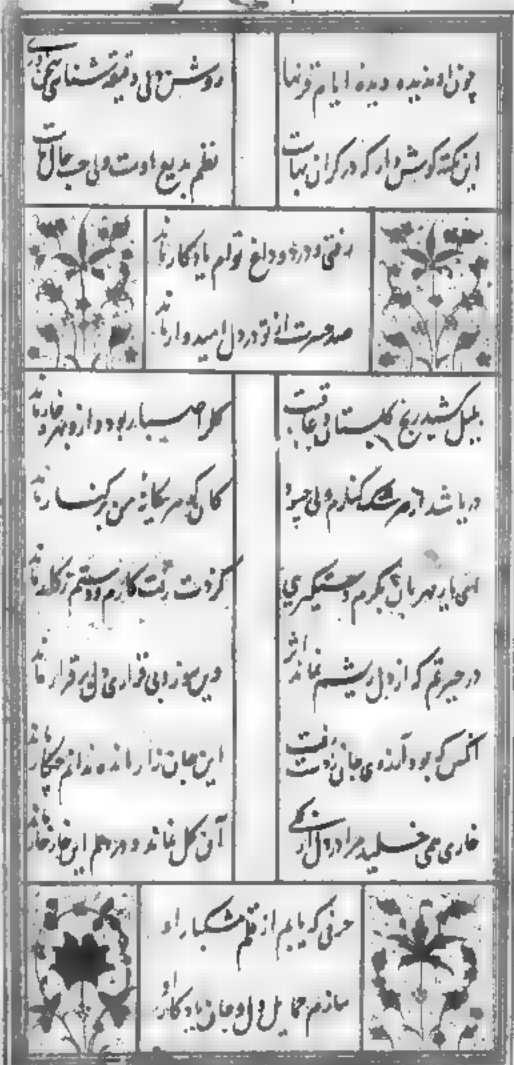 چون او ندیده دیدهٔ ایام قرنها
روشن دلی دقیقه شناسی سخن وری
این نکته گوش دار که در گران بهاست
نظم بدیع اوست ولی حسب حال ماست
رفتی و درد و داغ توام یادگار ماند
صد حسرت از تو در دل امیدوار ماند
بلبل کشید رنج گلستان و عاقبت
گل را صبا ربود و ازو بهره خار ماند
دریا شد از سرشک کنارم ولی چه سود
کان گوهر یگانهٔ من بر کنار ماند
ای یار مهربان بکرم دستگیریی
کز دست رفت کارم و دستم ز کار ماند
در حیرتم که از دل ریشم نماند اثر
وین سوز و بی قراری دل برقرار ماند
آنکس که بود آرزوی جان ز دست رفت
این جان زار مانده ندانم چکار ماند
خاری همی خلید مرا در دل از گلی
آن گل نماند و در دلم این خار خار ماند
حرفی که یابم از قلم مشکبار او
سازم حمایل دل و جان یادگار او